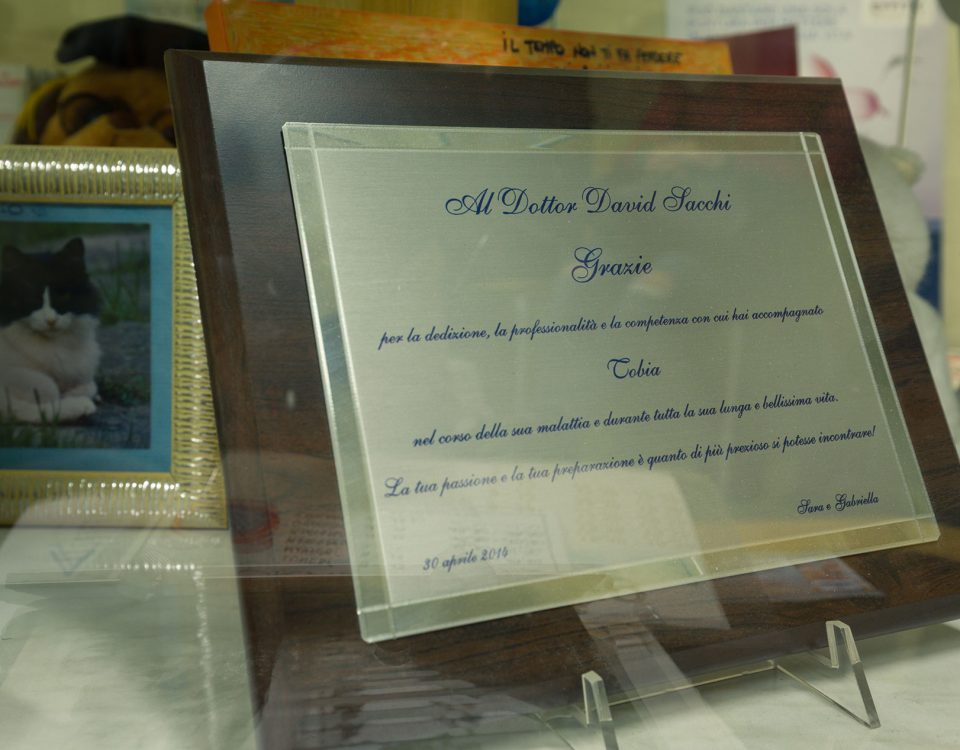 IL TEMPO NON TI FA PERDERE
Al Dottor David Sacchi
Grazie
per la dedizione, la professionalità e la competenza con cui hai accompagnato
Tobia
nel corso della sua malattia e durante tutta la sua lunga e bellissima vita.
La tua passione e la tua preparazione è quanto di più prezioso si potesse incontrare!
Sara e Gabriella
30 aprile 2014